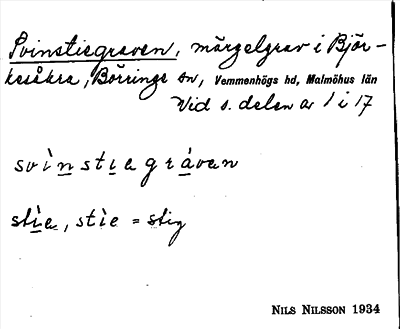 Svinstiegraven, märgelgrav i Björ-
kesåkra, Börringe sn, Vemmenhögs hd, Malmöhus län
Vid s. delen av 1 i 17
svìnstıegràvan
stìe, stìe = stig
NILS NILSSON 1934